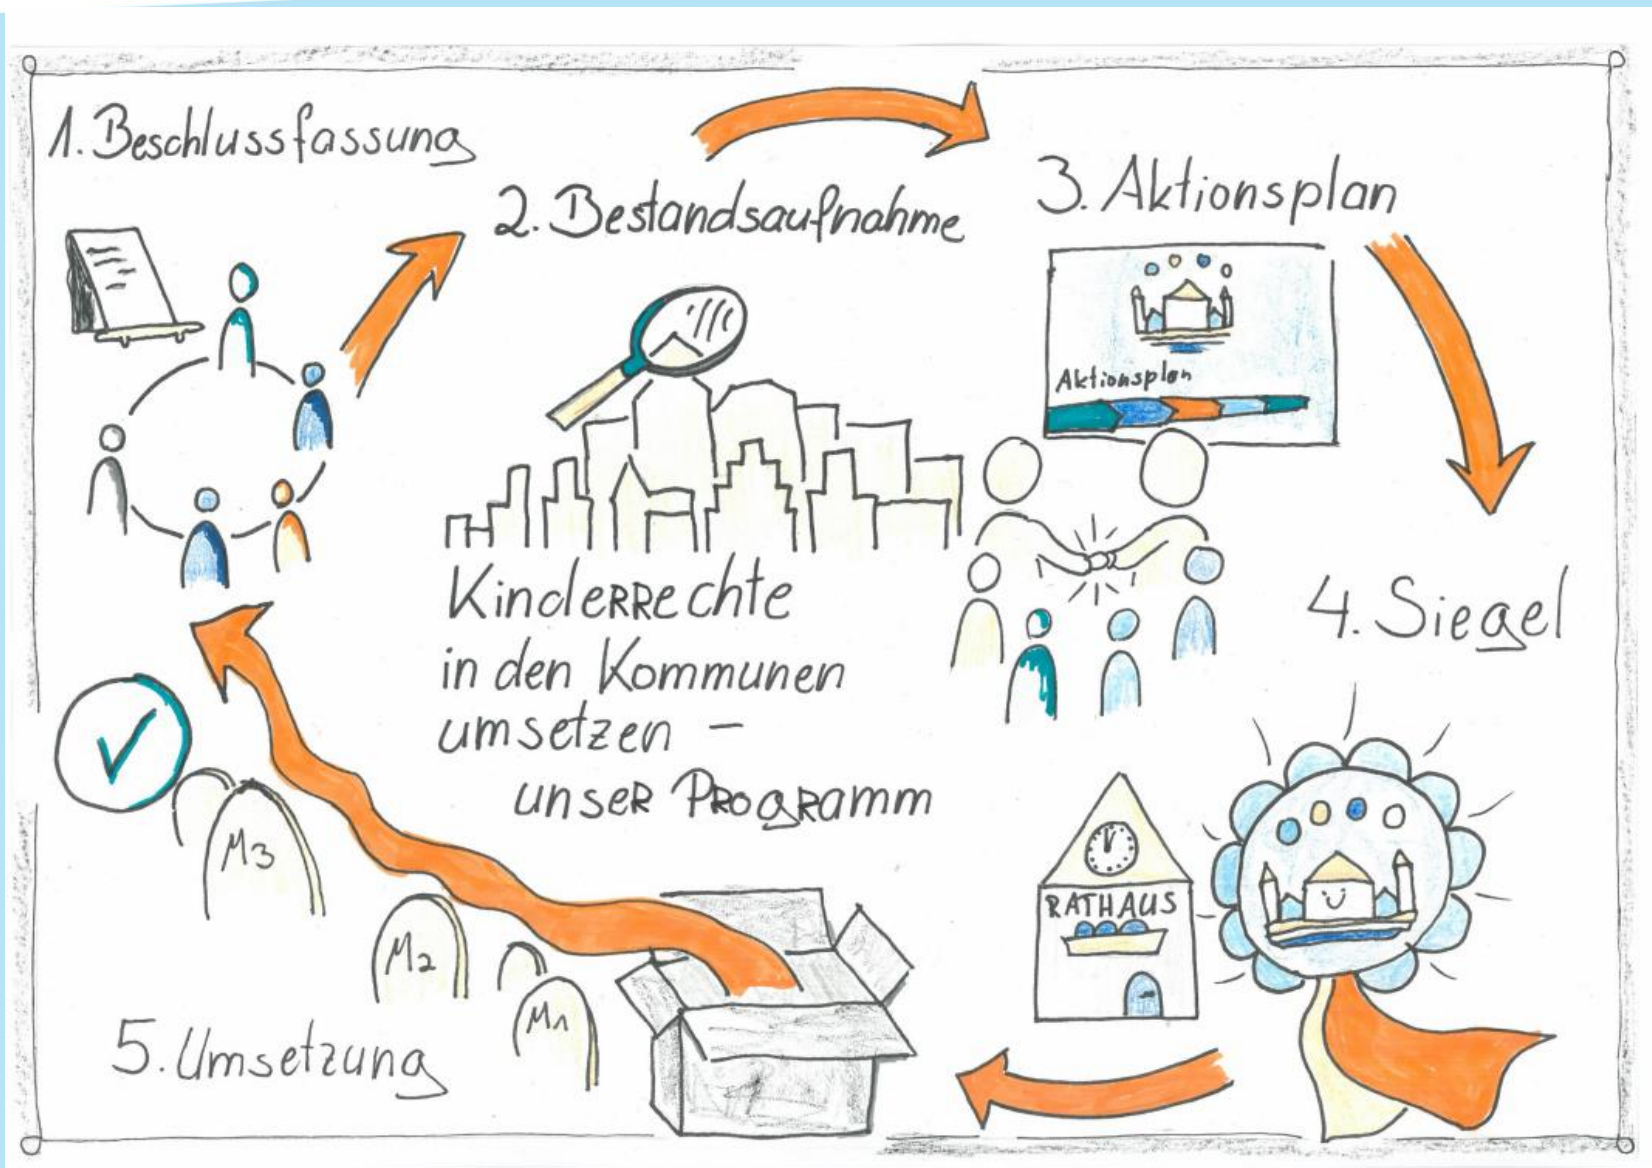 1. Beschlussfassung
2. Bestandsaufnahme
3. Aktionsplan
Aktionsplan
Kinderrechte
in den Kommunen
umsetzen –
unser Programm
4. Siegel
RATHAUS
M3
M2
M1
5. Umsetzung